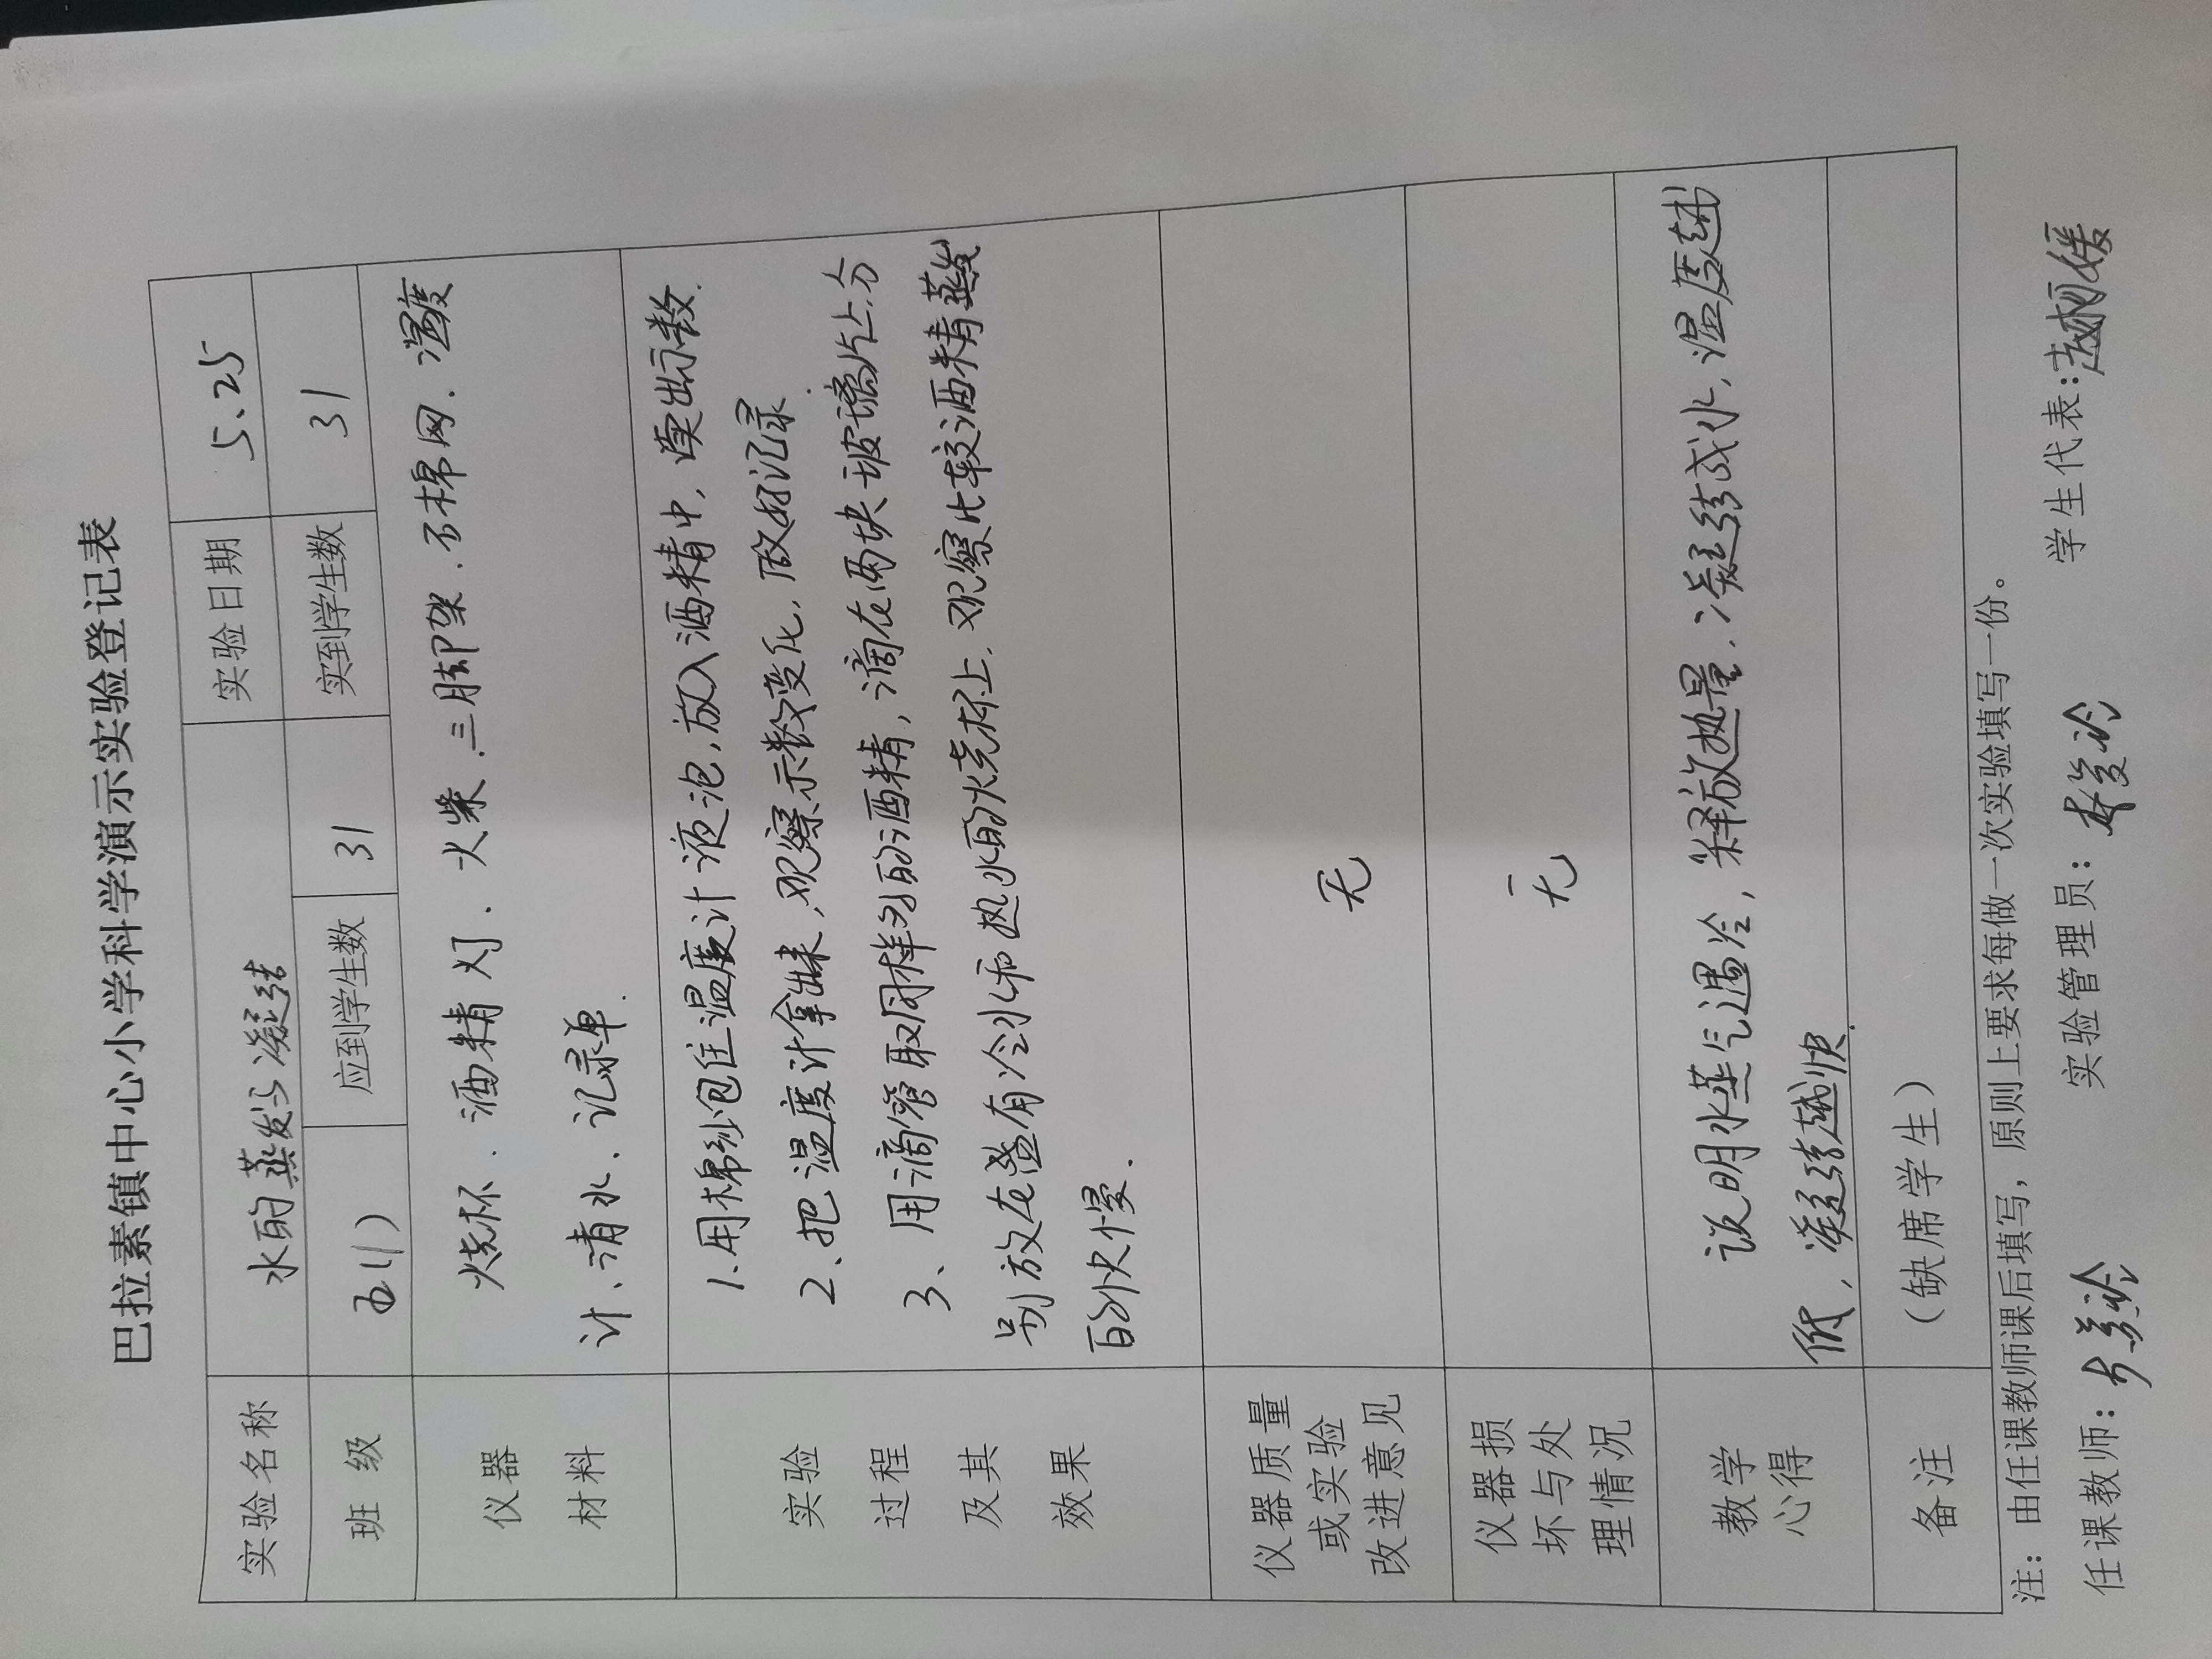 巴拉素镇中心小学科学演示实验登记表
实验名称 水的蒸发与凝结 实验日期 5.25
班 级 五(1) 应到学生数 31 实到学生数 31
仪器 烧杯、酒精灯、火柴、三脚架、石棉网、温度
材料 计、清水、记录单.
实验 1.用棉纱包住温度计液泡,放入酒精中,读出示数.
过程 2、把温度计拿出来,观察示数变化,做好记录.
及其 3、用滴管取同样多的酒精,滴在两块玻璃片上.分
别放在盛有冷水和热水的烧杯上.观察比较酒精蒸发
效果 的快慢.
仪器质量
或实验 无
改进意见
仪器损
坏与处 无
理情况
教学 说明水蒸气遇冷,释放热量,凝结成水,温度越
心得 低,凝结越快.
备注 (缺席学生)
注:由任课教师课后填写,原则上要求每做一次实验填写一份。
任课教师: 实验管理员: 学生代表: